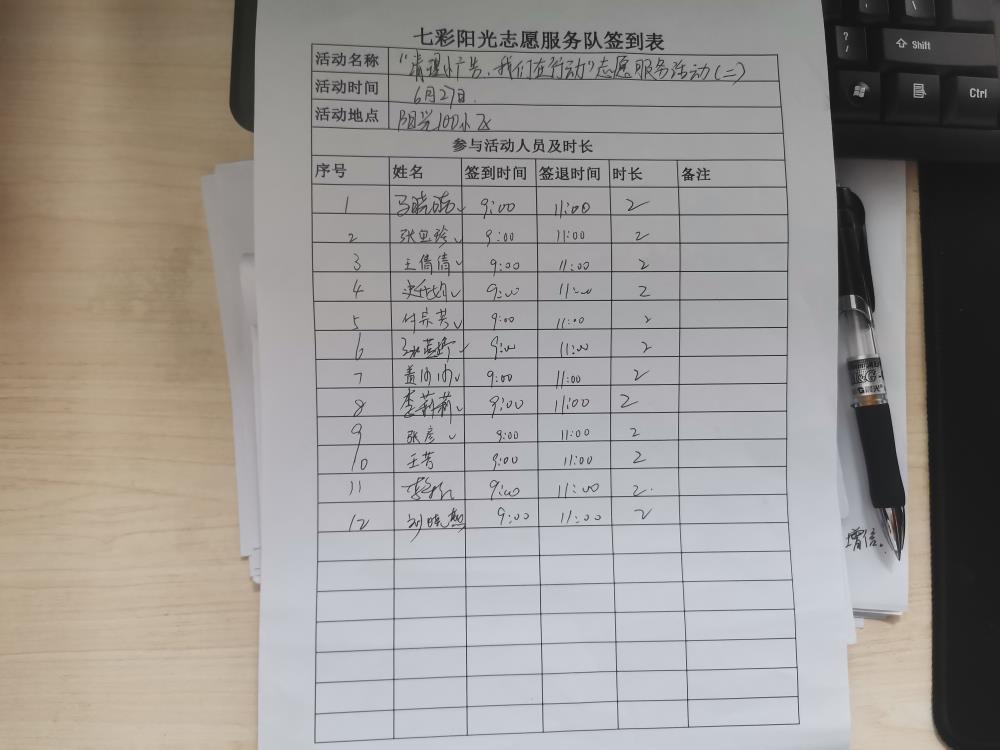 七彩阳光志愿服务队签到表
活动名称 "清理小广告,我们在行动"志愿服务活动(二)
活动时间 6月27日.
活动地点 阳光100小区
参与活动人员及时长
序号 姓名 签到时间 签退时间 时长 备注
1 9:00 11:00 2
2 9:00 11:00 2
3 王倩倩✓ 9:00 11:00 2
4 9:00 11:00 2
5 付宗芳✓ 9:00 11:00 2
6 9:00 11:00 2
7 盖沙沙✓ 9:00 11:00 2
8 李莉莉✓ 9:00 11:00 2
9 张彦✓ 9:00 11:00 2
10 王芳 9:00 11:00 2
11 9:00 11:00 2.
12 刘晓燕 9:00 11:00 2
? /
Shift
Ctrl
增信.